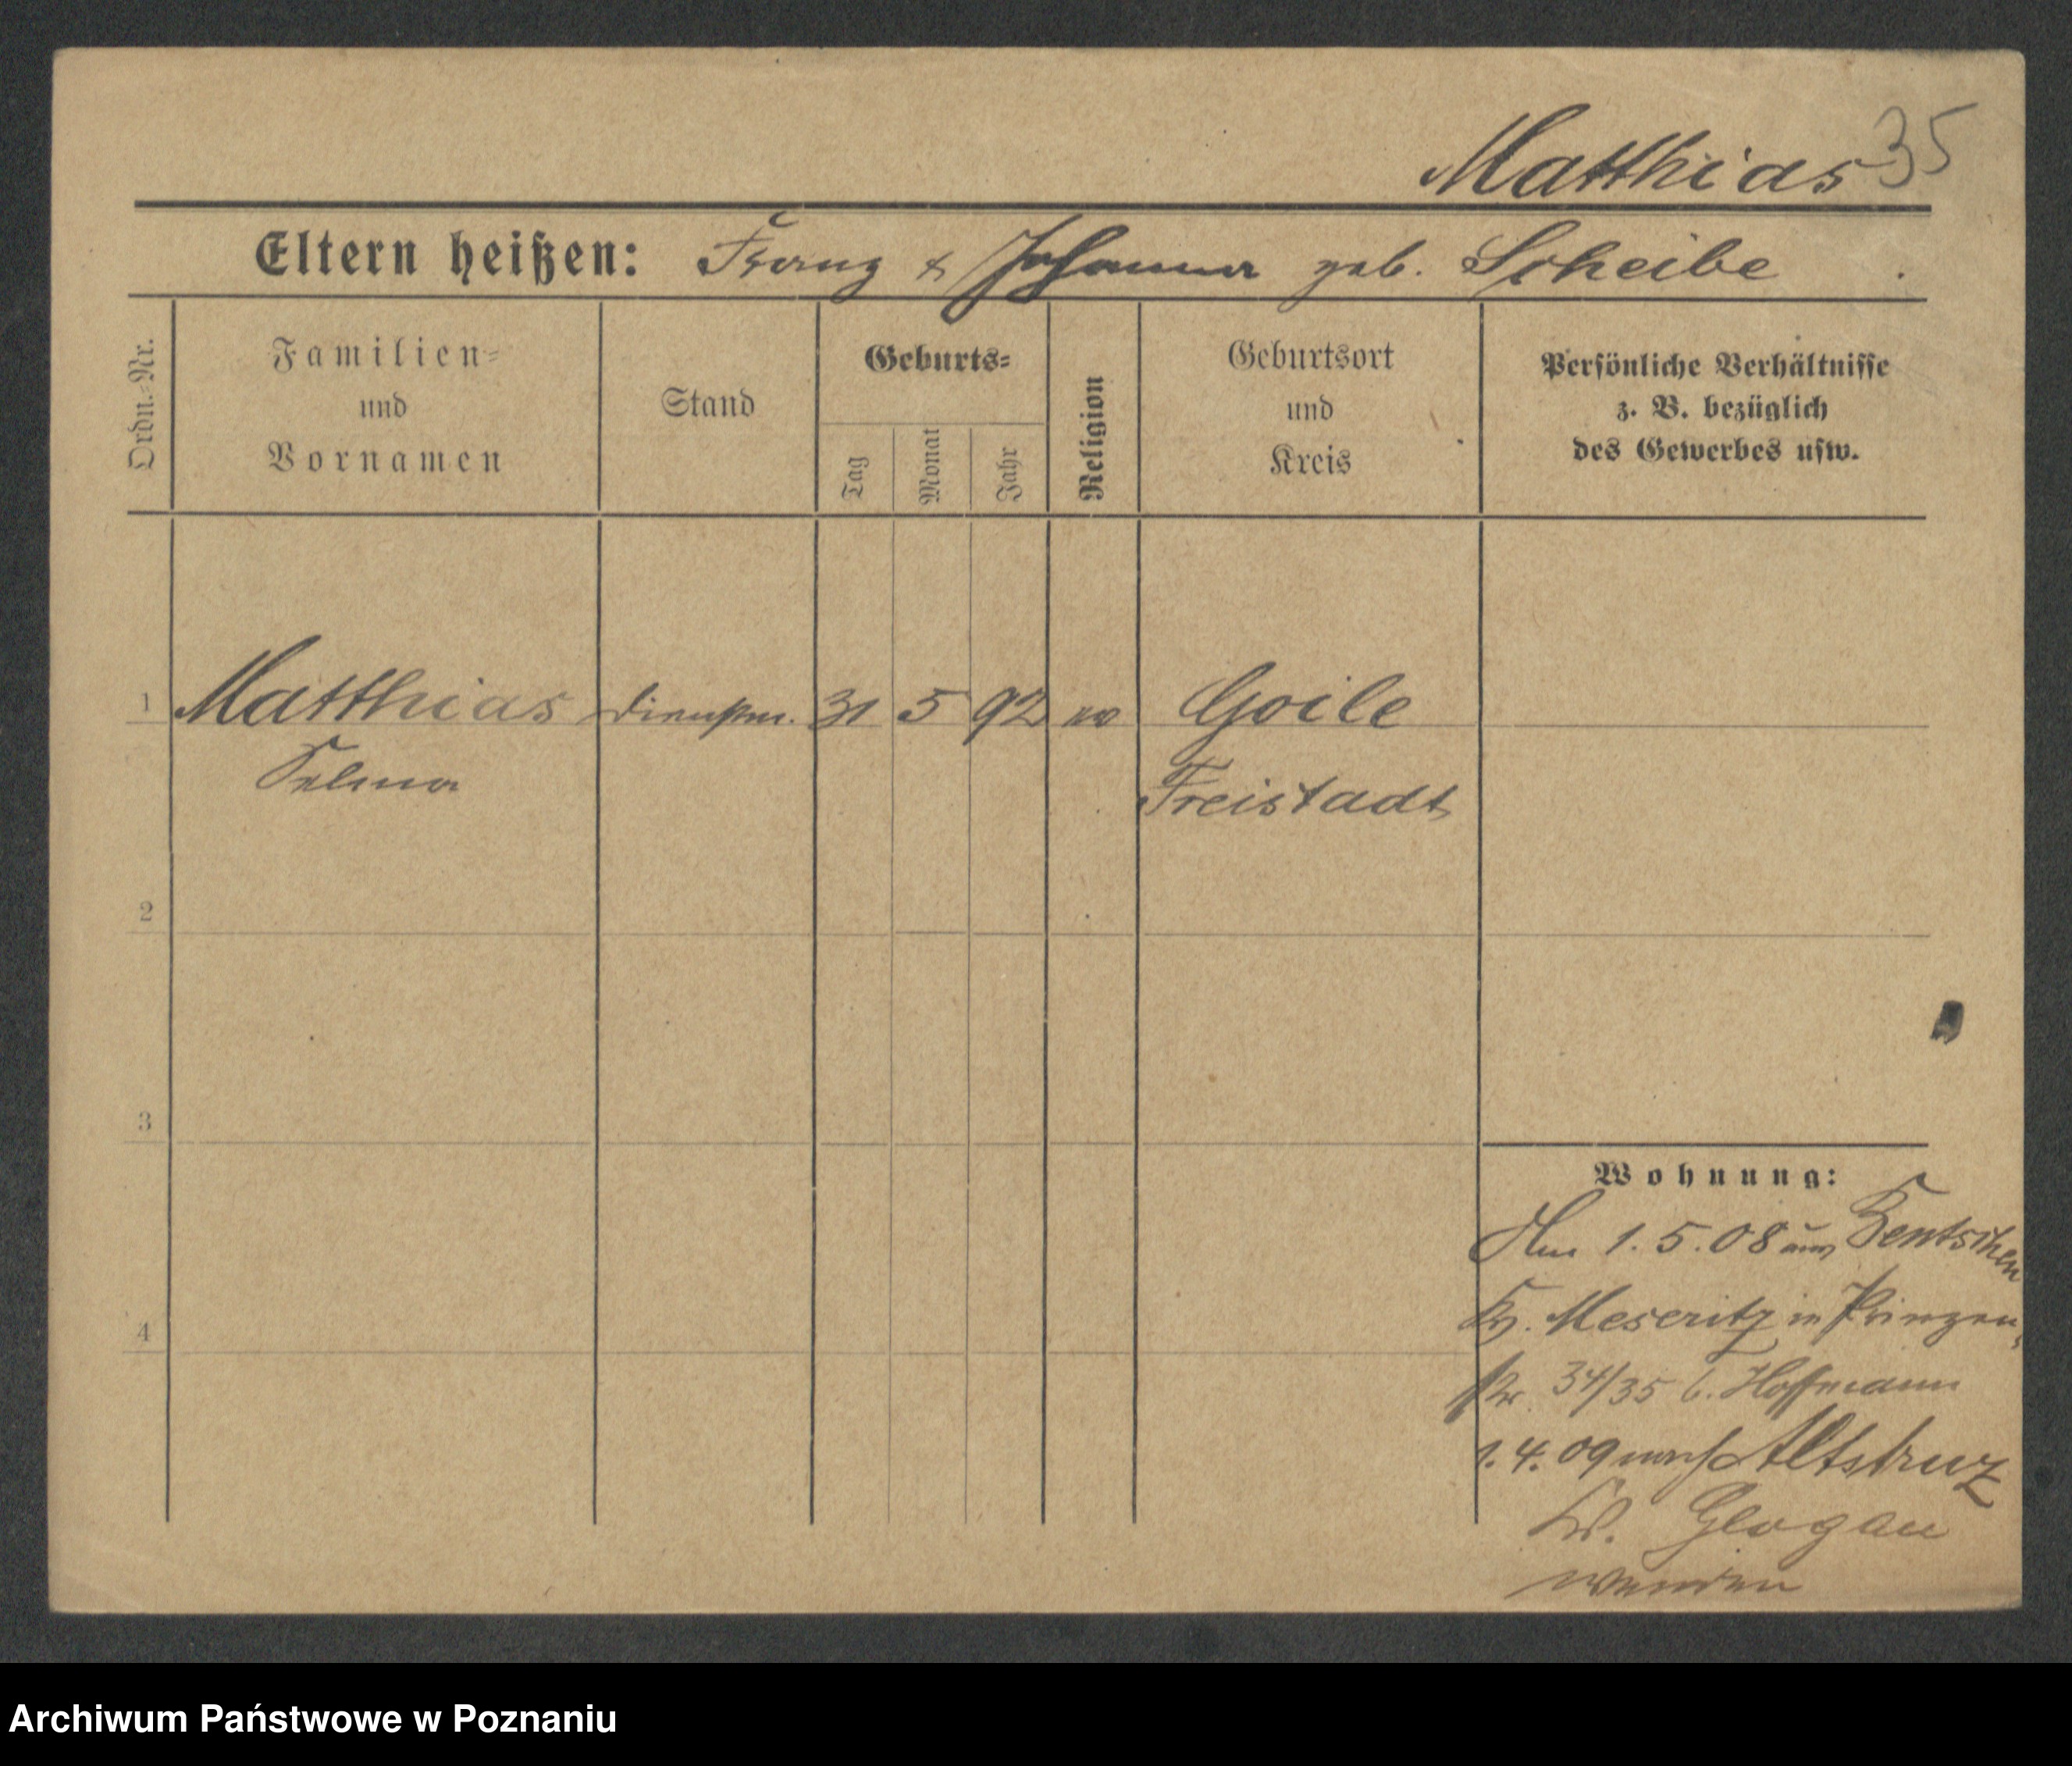 Matthias 35
Eltern heißen: Franz & Johanna geb. Scheibe
Ordn.-Nr.
Familien-
und
Vornamen
Stand
Geburts-
Tag
Monat
Jahr
Religion
Geburtsort
und
Kreis
Persönliche Verhältnisse
z. B. bezüglich
des Gewerbes usw.
1 Matthias Dienstm. 31 5 92 ev Goile
Selma Freistadt
2
3
4
Wohnung:
1.5.08 aus Bentschen
Kr. Meseritz in Prinzen-
str 34/35 b. Hoffmann
1.4.09 nach Altstruz
Kr. Glogau
Archiwum Państwowe w Poznaniu